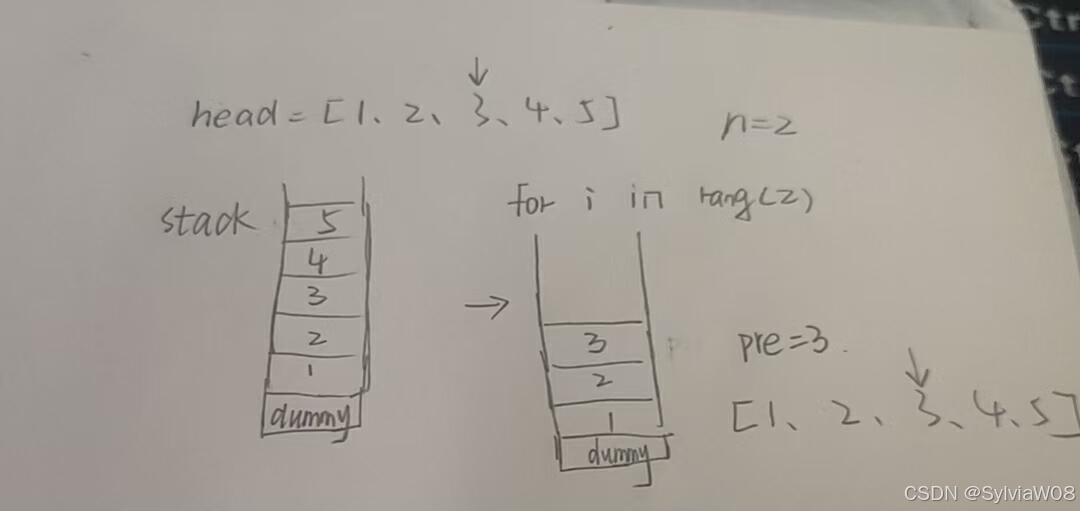 head = [1、2、3、4、5]
n=2
stack
5
4
3
2
1
dummy
for i in rang(2)
3
2
1
dummy
pre=3.
[1、2、3、4、5]
CSDN @SylviaW08